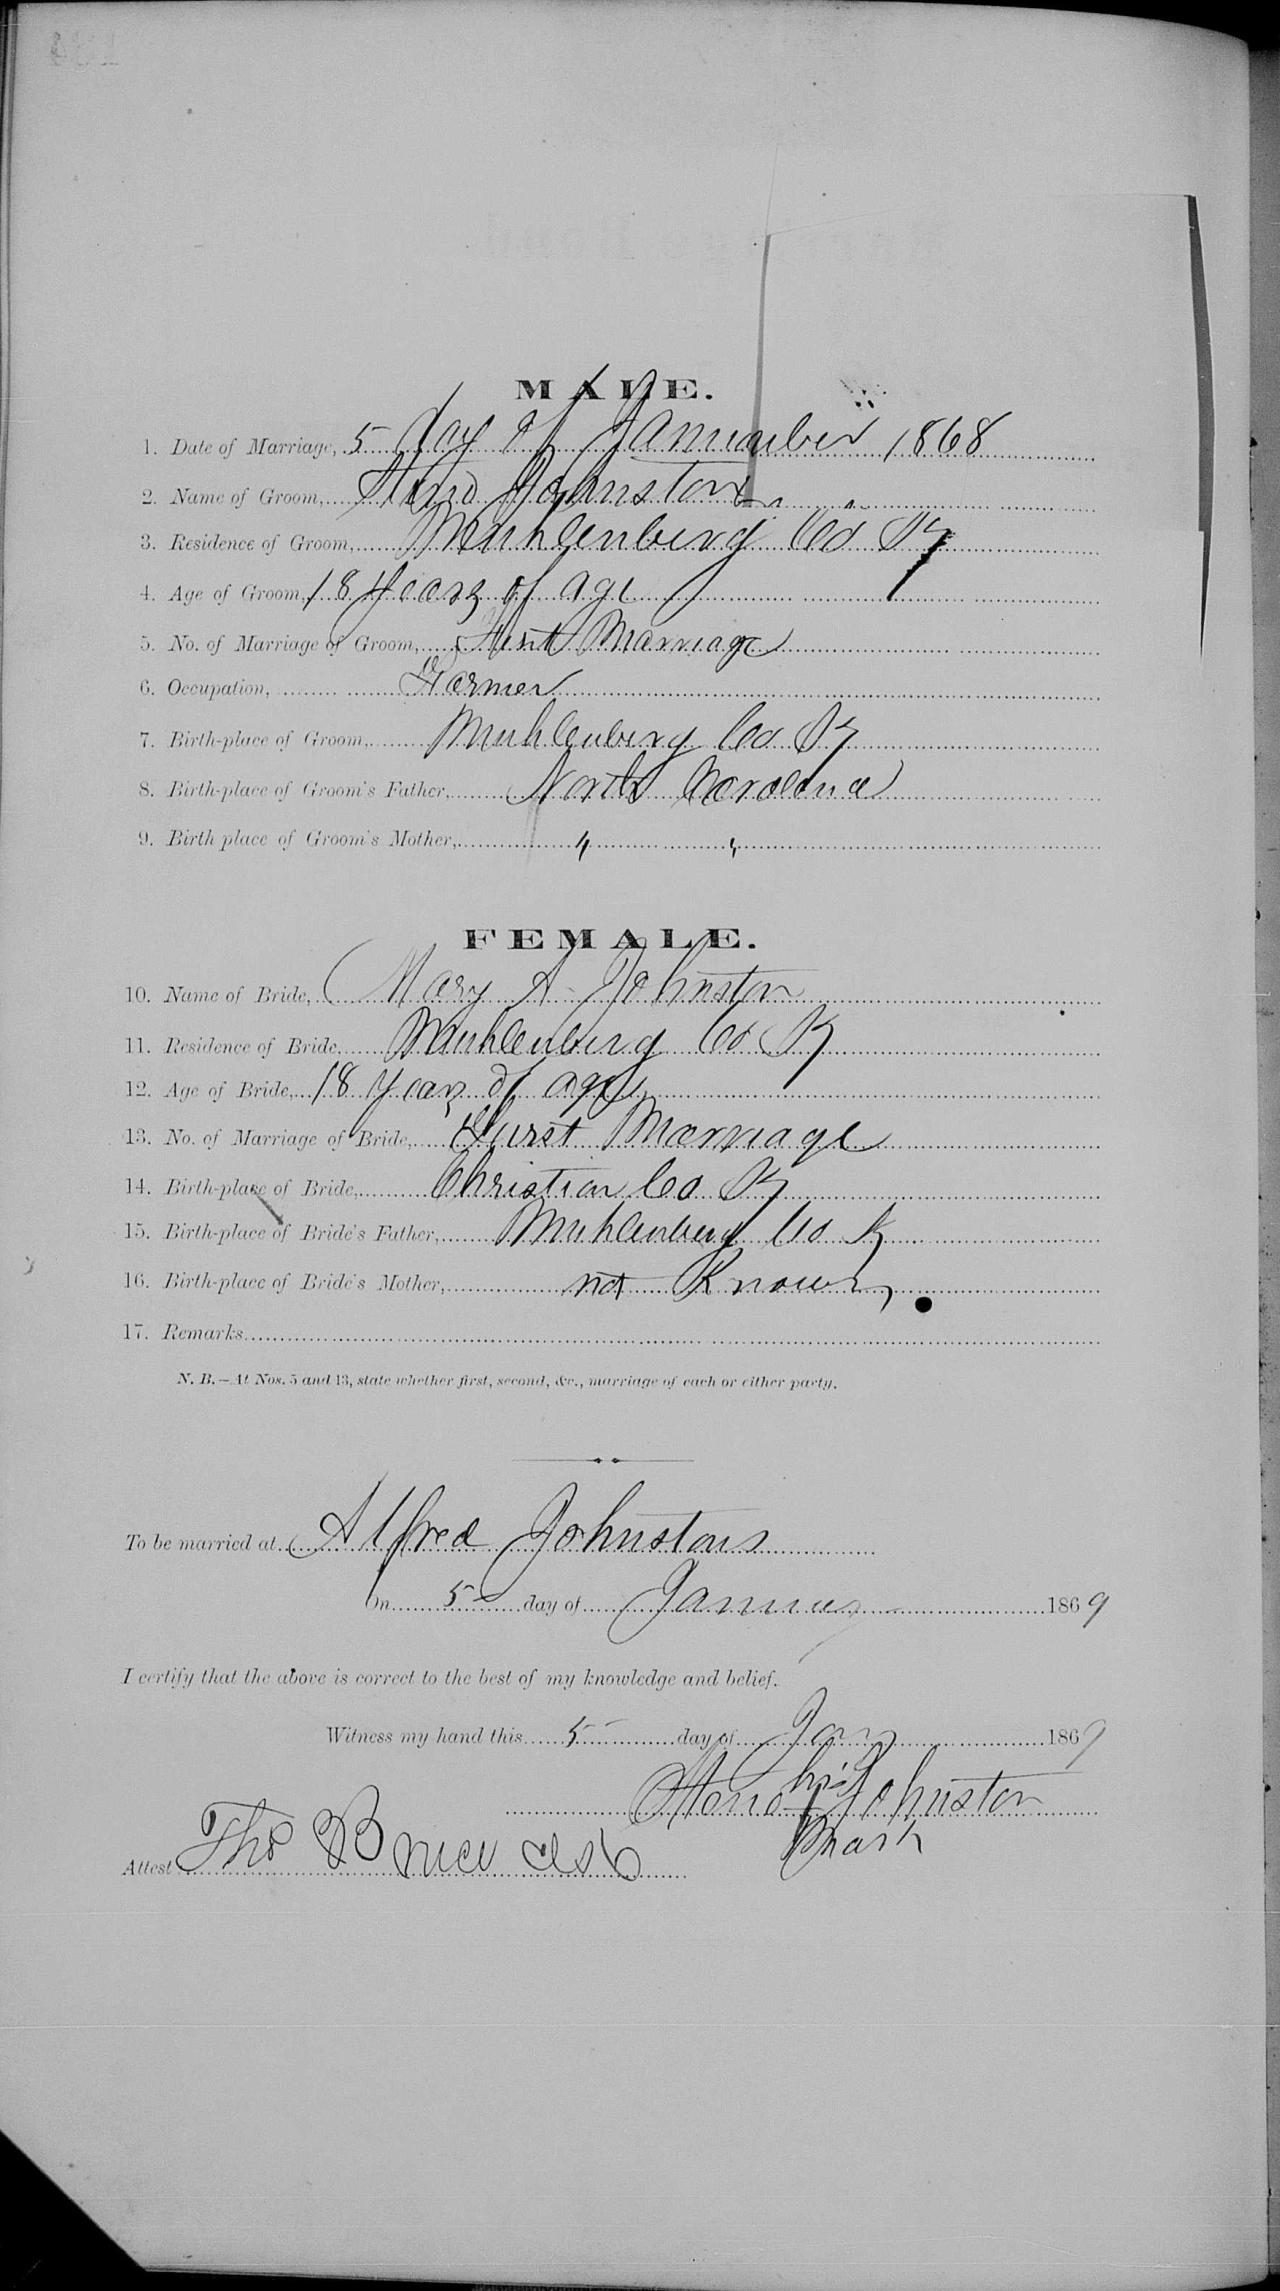 MALE.
1. Date of Marriage, 5 day of Januember 1868
2. Name of Groom, Johnston
3. Residence of Groom, Muhlenberg Co Ky
4. Age of Groom, 18 years of age
5. No. of Marriage of Groom, First Marriage
6. Occupation, Farmer
7. Birth-place of Groom, Muhlenberg Co Ky
8. Birth-place of Groom's Father, North Carolina
9. Birth place of Groom's Mother, " "
FEMALE.
10. Name of Bride, Mary A Johnston
11. Residence of Bride Muhlenberg Co Ky
12. Age of Bride, 18 years of age
13. No. of Marriage of Bride, First Marriage
14. Birth-place of Bride, Christian Co Ky
15. Birth-place of Bride's Father, Muhlenberg Co Ky
16. Birth-place of Bride's Mother, not Known
17. Remarks
N. B.—At Nos. 5 and 13, state whether first, second, &c., marriage of each or either party.
To be married at Alfred Johnstons
On 5 day of January 1869
I certify that the above is correct to the best of my knowledge and belief.
Witness my hand this 5 day of Jany 1869
his
Johnston
mark
Attest Tho Bruce